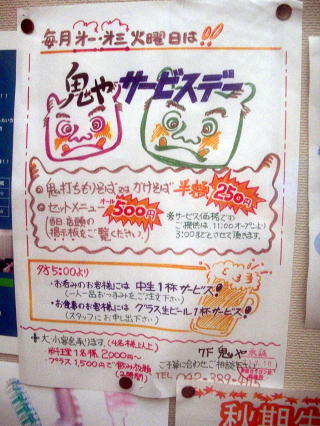 毎月第一・第三火曜日は!!
鬼やサービスデー
鬼打ちもりそば又はかけそば 半額 250円
セットメニュー オール 500円
当日、店頭の
掲示板をご覧ください。
※サービス価格での
ご提供は、11:00オープンより
3:00までとさせて頂きます。
夕5:00より
・お呑みのお客様には 中生1杯サービス!
(一人一品おつまみをご注文下さい)
・お食事のお客様には グラス生ビール1杯サービス!
(スタッフにお申し出下さい)
大・小宴会承ります。(4名様以上)
料理1名様 2,000円〜
プラス1,500円で飲み放題
(2時間)
7F 鬼や
ご予算に合わせご相談下さい。
TEL 042-389-
秋期生